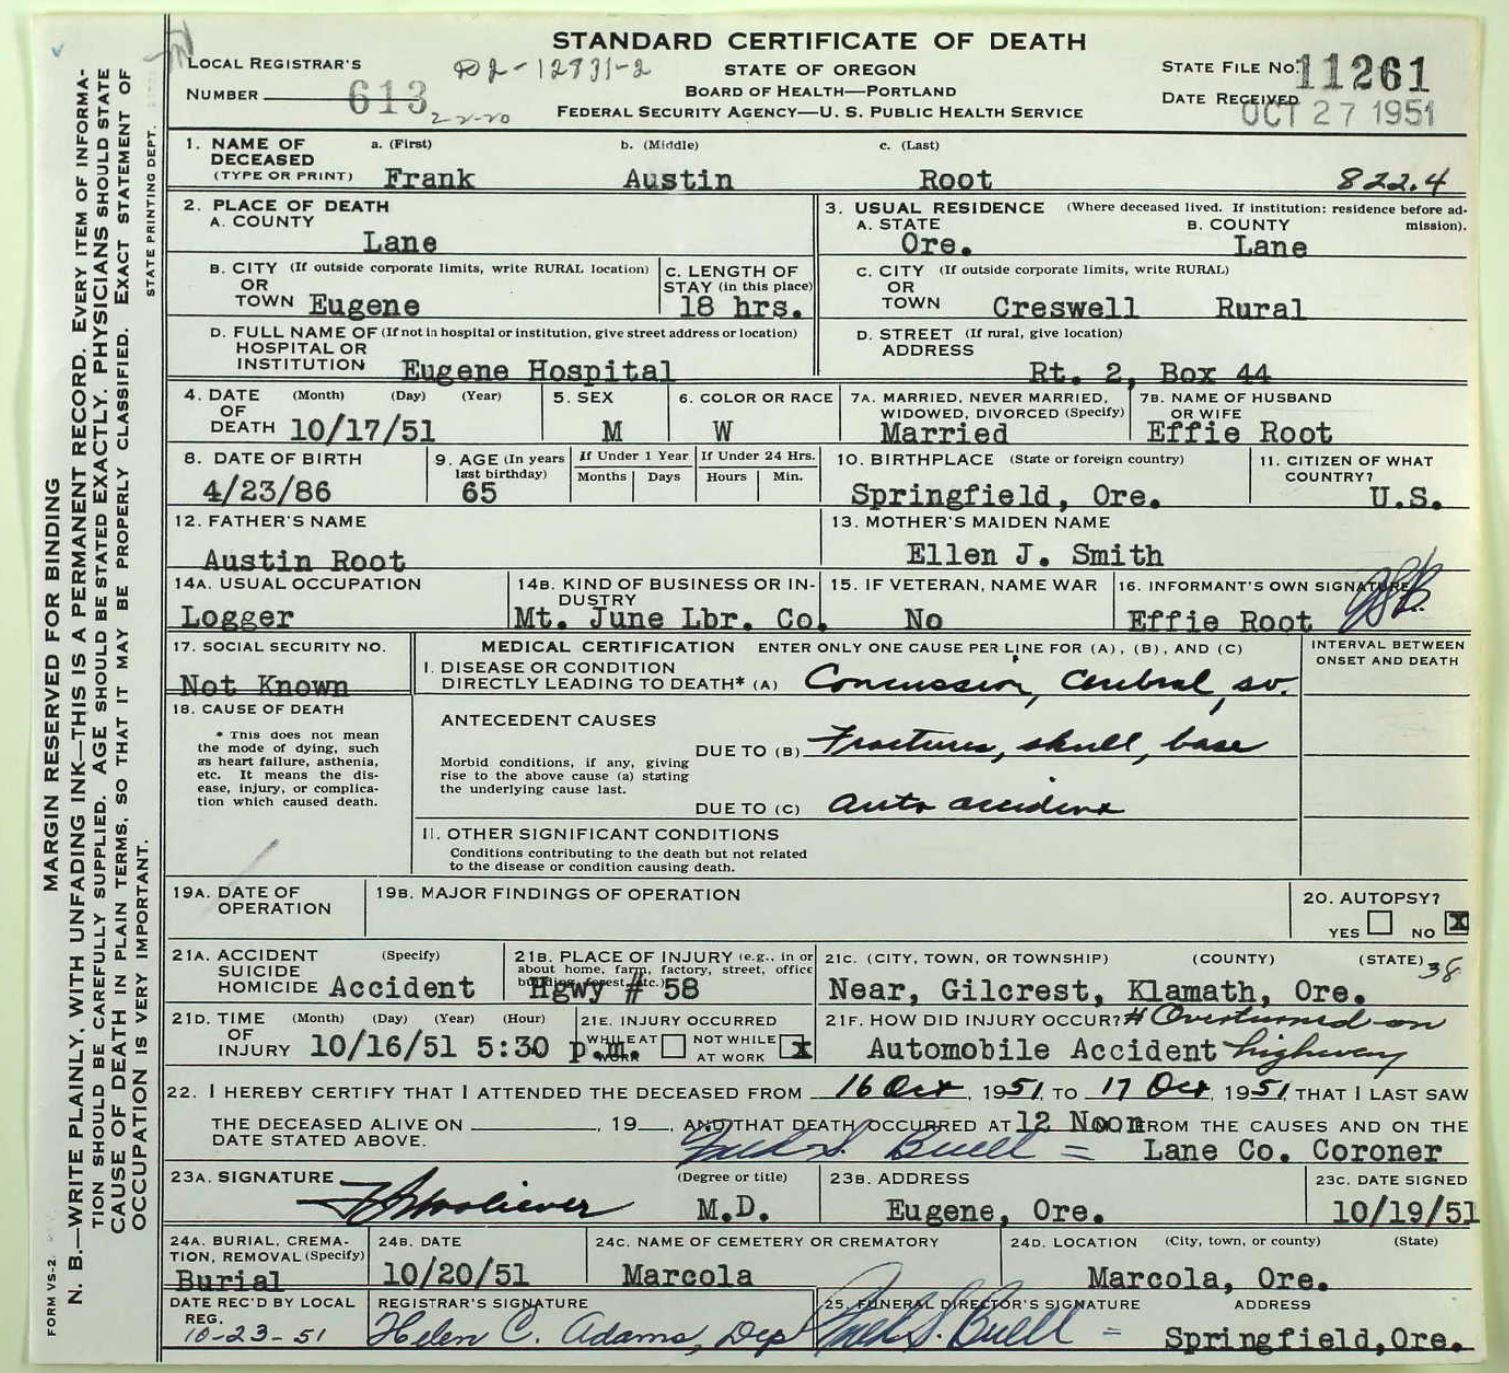 STANDARD CERTIFICATE OF DEATH
STATE OF OREGON
BOARD OF HEALTH—PORTLAND
FEDERAL SECURITY AGENCY—U. S. PUBLIC HEALTH SERVICE
LOCAL REGISTRAR'S
NUMBER 613
22-20
STATE FILE NO. 11261
DATE RECEIVED OCT 27 1951
1. NAME OF DECEASED (TYPE OR PRINT) a. (First) b. (Middle) c. (Last)
Frank Austin Root 822.4
2. PLACE OF DEATH
A. COUNTY
Lane
3. USUAL RESIDENCE (Where deceased lived. If institution: residence before admission).
A. STATE B. COUNTY
Ore. Lane
B. CITY (If outside corporate limits, write RURAL location)
OR
TOWN Eugene
C. LENGTH OF
STAY (in this place)
18 hrs.
C. CITY (If outside corporate limits, write RURAL)
OR
TOWN Creswell Rural
D. FULL NAME OF (If not in hospital or institution, give street address or location)
HOSPITAL OR
INSTITUTION Eugene Hospital
D. STREET (If rural, give location)
ADDRESS
Rt. 2, Box 44
4. DATE (Month) (Day) (Year)
OF
DEATH 10/17/51
5. SEX
M
6. COLOR OR RACE
W
7A. MARRIED, NEVER MARRIED,
WIDOWED, DIVORCED (Specify)
Married
7B. NAME OF HUSBAND
OR WIFE
Effie Root
8. DATE OF BIRTH
4/23/86
9. AGE (In years
last birthday)
65
If Under 1 Year
Months Days
If Under 24 Hrs.
Hours Min.
10. BIRTHPLACE (State or foreign country)
Springfield, Ore.
11. CITIZEN OF WHAT
COUNTRY?
U.S.
12. FATHER'S NAME
Austin Root
13. MOTHER'S MAIDEN NAME
Ellen J. Smith
14A. USUAL OCCUPATION
Logger
14B. KIND OF BUSINESS OR IN-
DUSTRY
Mt. June Lbr. Co.
15. IF VETERAN, NAME WAR
No
16. INFORMANT'S OWN SIGNATURE
Effie Root
17. SOCIAL SECURITY NO.
Not Known
MEDICAL CERTIFICATION ENTER ONLY ONE CAUSE PER LINE FOR (A), (B), AND (C)
INTERVAL BETWEEN
ONSET AND DEATH
I. DISEASE OR CONDITION
DIRECTLY LEADING TO DEATH* (A) Concussion, Cerebral, sv.
18. CAUSE OF DEATH
* This does not mean
the mode of dying, such
as heart failure, asthenia,
etc. It means the dis-
ease, injury, or complica-
tion which caused death.
ANTECEDENT CAUSES
DUE TO (B) Fractures, skull, base
Morbid conditions, if any, giving
rise to the above cause (a) stating
the underlying cause last.
DUE TO (C) Auto accident
II. OTHER SIGNIFICANT CONDITIONS
Conditions contributing to the death but not related
to the disease or condition causing death.
19A. DATE OF
OPERATION
19B. MAJOR FINDINGS OF OPERATION
20. AUTOPSY?
YES NO X
21A. ACCIDENT (Specify)
SUICIDE
HOMICIDE Accident
21B. PLACE OF INJURY (e.g., in or
about home, farm, factory, street, office
building, forest, etc.)
Hgwy # 58
21C. (CITY, TOWN, OR TOWNSHIP) (COUNTY) (STATE) 38
Near, Gilcrest, Klamath, Ore.
21D. TIME (Month) (Day) (Year) (Hour)
OF
INJURY 10/16/51 5:30 p.m.
21E. INJURY OCCURRED
WHILE AT WORK NOT WHILE AT WORK X
21F. HOW DID INJURY OCCUR? # Overturned on
Automobile Accident highway
22. I HEREBY CERTIFY THAT I ATTENDED THE DECEASED FROM 16 Oct, 1951, TO 17 Oct, 1951, THAT I LAST SAW
THE DECEASED ALIVE ON , 19 , AND THAT DEATH OCCURRED AT 12 Noon FROM THE CAUSES AND ON THE
DATE STATED ABOVE. Buell = Lane Co. Coroner
23A. SIGNATURE (Degree or title)
M.D.
23B. ADDRESS
Eugene, Ore.
23C. DATE SIGNED
10/19/51
24A. BURIAL, CREMA-
TION, REMOVAL (Specify)
Burial
24B. DATE
10/20/51
24C. NAME OF CEMETERY OR CREMATORY
Marcola
24D. LOCATION (City, town, or county) (State)
Marcola, Ore.
DATE REC'D BY LOCAL
REG.
10-23-51
REGISTRAR'S SIGNATURE
Helen C. Adams, Dep
25. FUNERAL DIRECTOR'S SIGNATURE ADDRESS
S. Buell = Springfield, Ore.
MARGIN RESERVED FOR BINDING
N. B.—WRITE PLAINLY, WITH UNFADING INK—THIS IS A PERMANENT RECORD. EVERY ITEM OF INFORMA-
TION SHOULD BE CAREFULLY SUPPLIED. AGE SHOULD BE STATED EXACTLY. PHYSICIANS SHOULD STATE
CAUSE OF DEATH IN PLAIN TERMS, SO THAT IT MAY BE PROPERLY CLASSIFIED. EXACT STATEMENT OF
OCCUPATION IS VERY IMPORTANT.
STATE PRINTING DEPT.
FORM VS-2